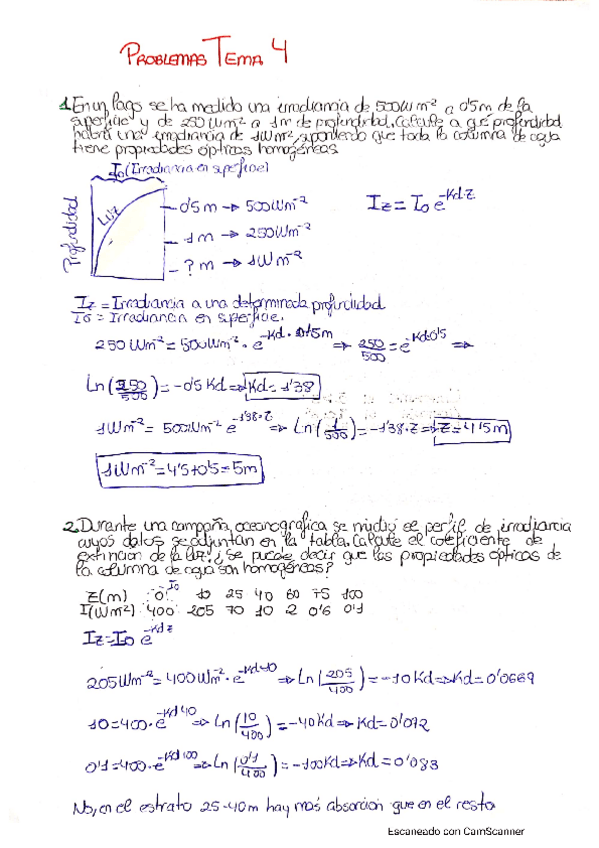 PROBLEMAS TEMA 4
1. En un lago se ha medido una irradiancia de 500 W m⁻² a 0'5 m de la
superficie y de 250 W m⁻² a 1 m de profundidad. Calcule a qué profundidad
habrá una irradiancia de 1 W m⁻², suponiendo que toda la columna de agua
tiene propiedades ópticas homogéneas.
I₀ (Irradiancia en superficie)
Profundidad
Luz
0'5 m → 500 W m⁻²
1 m → 250 W m⁻²
? m → 1 W m⁻²
Iz = I₀ e^-Kd·z
Iz = Irradiancia a una determinada profundidad
I₀ = Irradiancia en superficie.
250 W m⁻² = 500 W m⁻² · e^-Kd · 0'5m ⇒ 250/500 = e^-Kd·0'5 ⇒
Ln (250/500) = -0'5 Kd ⇒ Kd = 1'38
1 W m⁻² = 500 W m⁻² e^-1'38·z ⇒ Ln (1/500) = -1'38·z ⇒ z = 4'5 m
1 W m⁻² = 4'5 + 0'5 = 5 m
2. Durante una campaña oceanográfica se midió el perfil de irradiancia
cuyos datos se adjuntan en la tabla. Calcule el coeficiente de
extinción de la luz. ¿Se puede decir que las propiedades ópticas de
la columna de agua son homogéneas?
I₀
Z(m) 0 10 25 40 60 75 100
I(W m²) 400 205 70 10 2 0'6 0'1
Iz = I₀ e^-Kd z
205 W m⁻² = 400 W m⁻² · e^-Kd·10 ⇒ Ln (205/400) = -10 Kd ⇒ Kd = 0'0669
10 = 400 · e^-Kd 40 ⇒ Ln (10/400) = -40 Kd ⇒ Kd = 0'092
0'1 = 400 · e^-Kd 100 ⇒ Ln (0'1/400) = -100 Kd ⇒ Kd = 0'083
No, en el estrato 25-40 m hay más absorción que en el resto
Escaneado con CamScanner